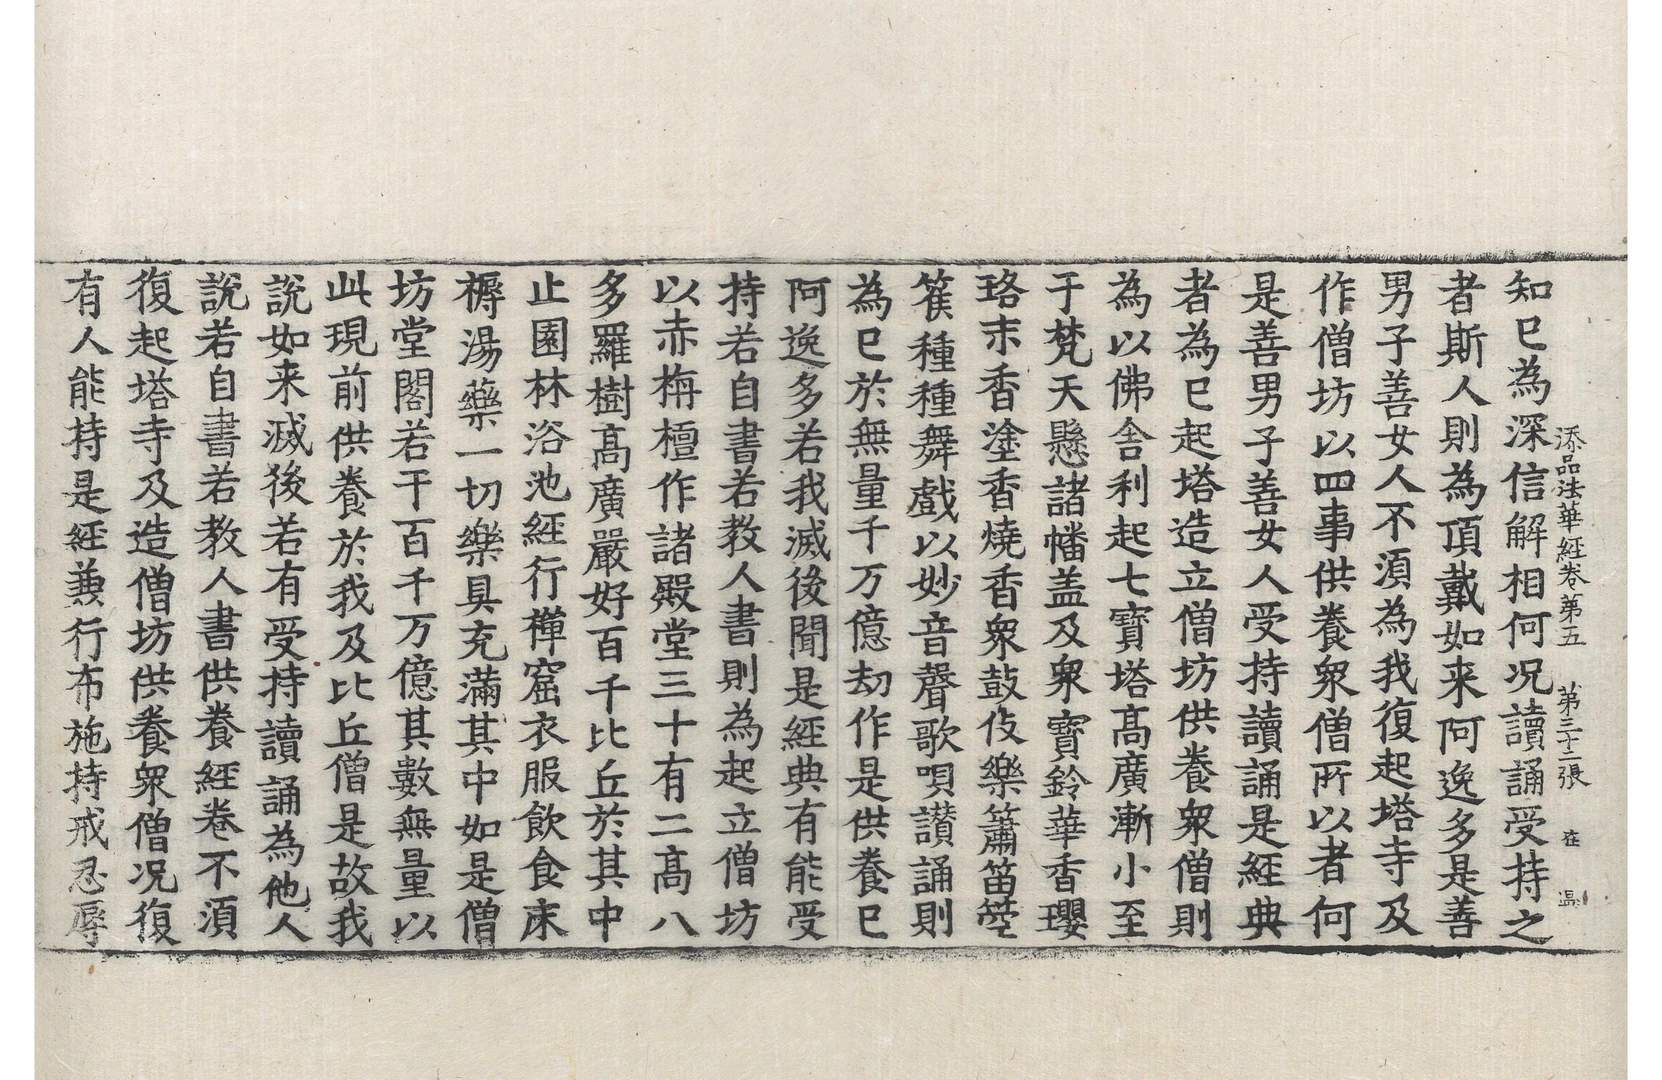 添品法華經卷第五　第三十二張　在
知已為深信解相何况讀誦受持之
者斯人則為頂戴如来阿逸多是善
男子善女人不湏為我復起塔寺及
作僧坊以四事供養衆僧所以者何
是善男子善女人受持讀誦是經典
者為已起塔造立僧坊供養衆僧則
為以佛舎利起七寶塔髙廣漸小至
于梵天懸諸幡盖及衆寶鈴華香瓔
珞末香塗香燒香衆鼓伎樂簫笛箜
篌種種舞戲以妙音聲歌唄讃誦則
為已於無量千万億劫作是供養已
阿逸多若我滅後聞是經典有能受
持若自書若教人書則為起立僧坊
以赤栴檀作諸殿堂三十有二髙八
多羅樹髙廣嚴好百千比丘於其中
止園林浴池經行禪窟衣服飲食床
褥湯藥一切樂具充滿其中如是僧
坊堂閣若干百千万億其數無量以
此現前供養於我及比丘僧是故我
說如来滅後若有受持讀誦為他人
說若自書若教人書供養經卷不湏
復起塔寺及造僧坊供養衆僧况復
有人能持是經兼行布施持戒忍辱